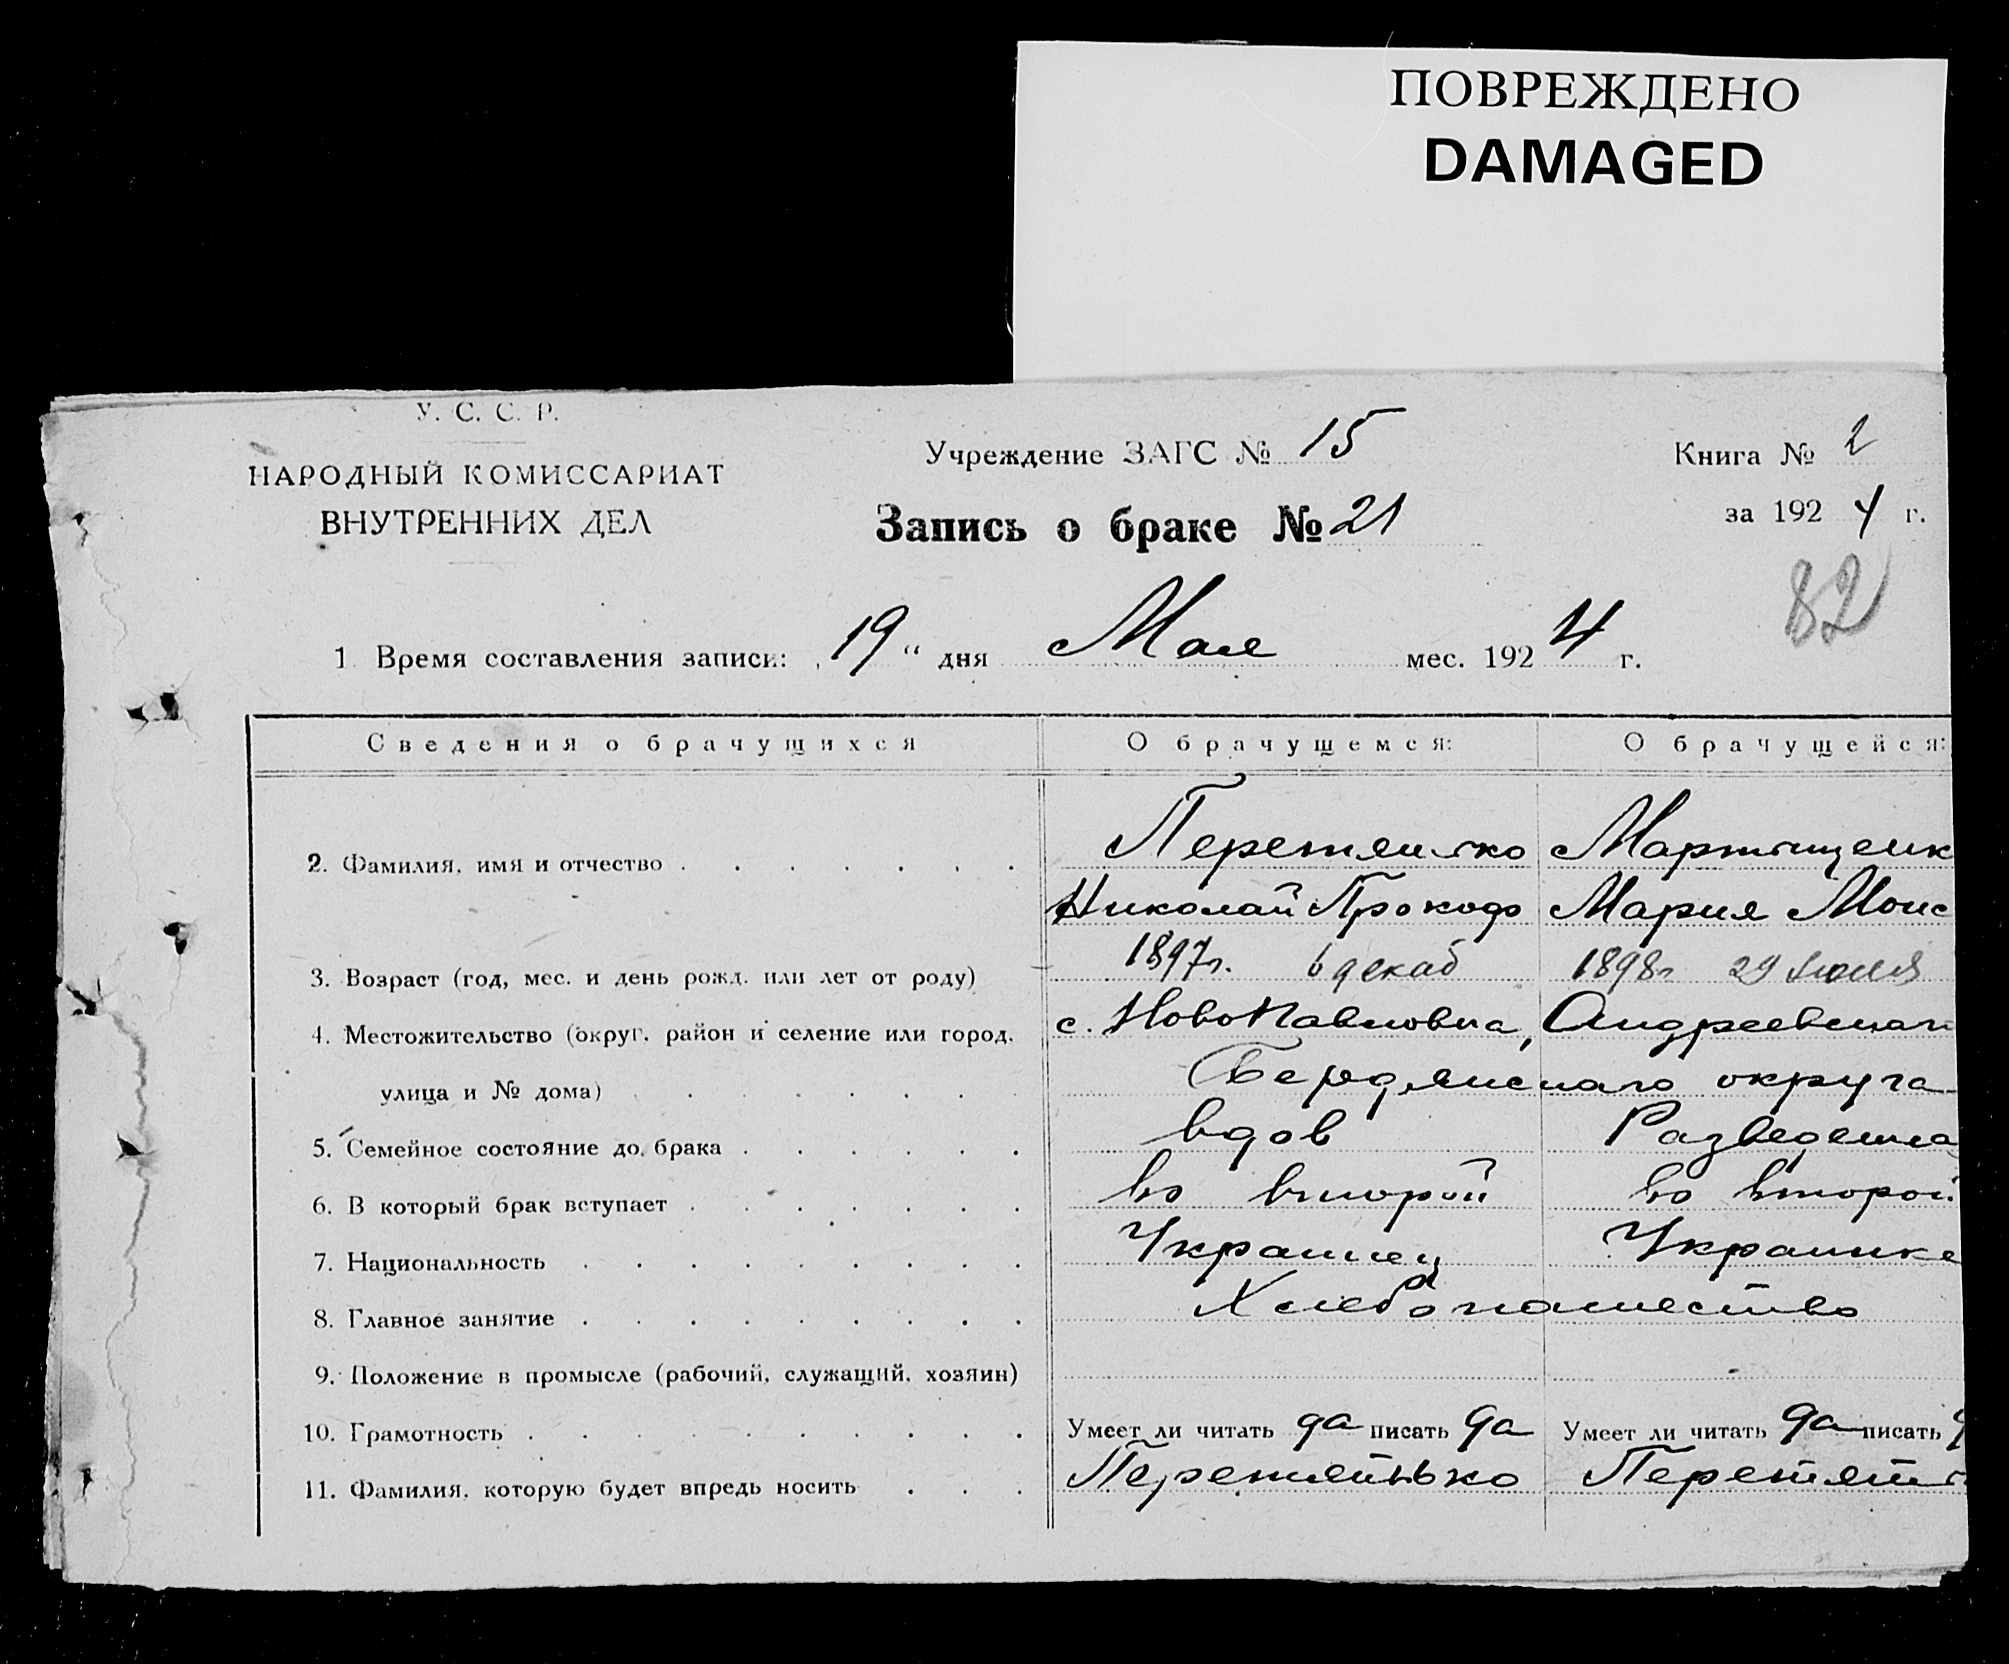 ПОВРЕЖДЕНО
DAMAGED
У. С. С. Р.
НАРОДНЫЙ КОМИССАРИАТ
ВНУТРЕННИХ ДЕЛ
Учреждение ЗАГС № 15
Книга № 2
Запись о браке № 21
за 1924 г.
82
1 Время составления записи: „19“ дня Мая мес. 1924 г.
Сведения о брачущихся О брачущемся: О брачущейся:
2. Фамилия, имя и отчество Перетятько Мартыщенк
Николай Прокоф Мария Моис
3. Возраст (год, мес. и день рожд. или лет от роду) 1897г. 6 декаб 1898г 29 Июля
4. Местожительство (округ, район и селение или город, с. НовоПавловка, Андреевскаго
улица и № дома) Бердянскаго округа
5. Семейное состояние до брака вдов Разведена
6. В который брак вступает во второй во второй
7. Национальность Украинец Украинка
8. Главное занятие Хлебопашество
9. Положение в промысле (рабочий, служащий, хозяин)
10. Грамотность Умеет ли читать да писать да Умеет ли читать да писать
11. Фамилия, которую будет впредь носить Перетятько Перетять